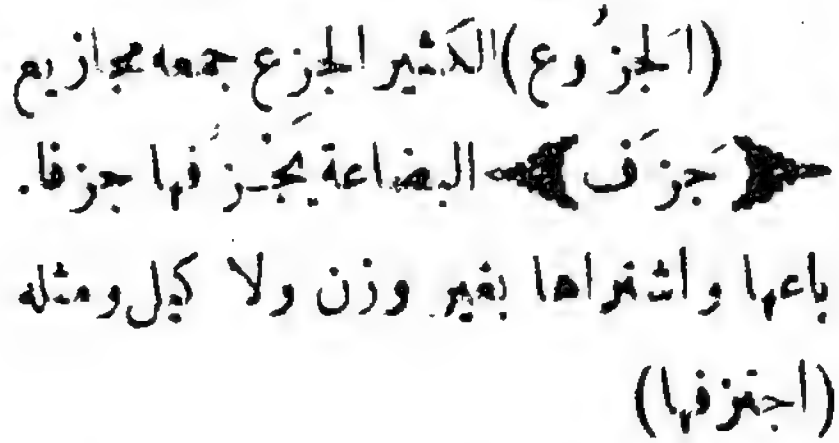 (الجَزُوع) الكَثير الجزع جمعه مجازيع
﴿جَزَف﴾ البضاعة يَجْزَفها جزفا.
باعها واشتراها بغير وزن ولا كيل ومثله
(اجتزفها)